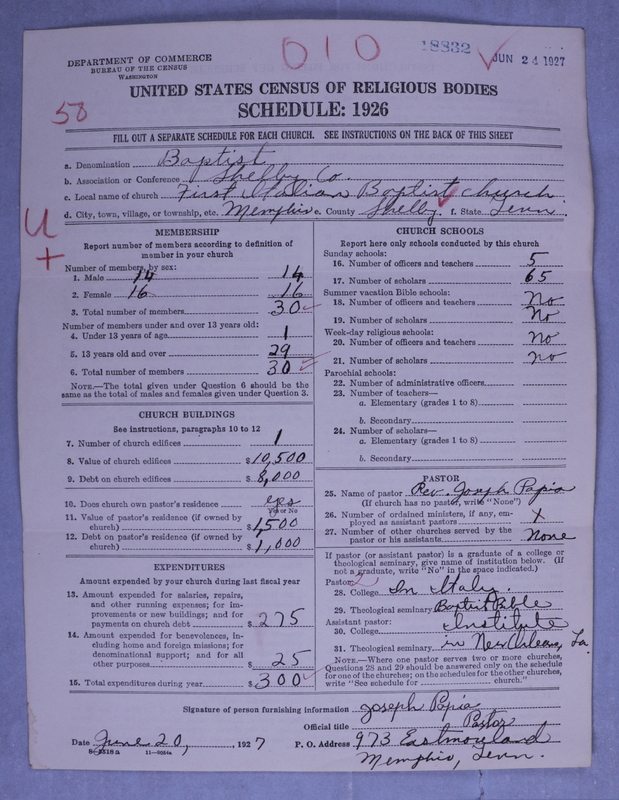 010
18832
JUN 24 1927
DEPARTMENT OF COMMERCE
BUREAU OF THE CENSUS
WASHINGTON
58
UNITED STATES CENSUS OF RELIGIOUS BODIES
SCHEDULE: 1926
FILL OUT A SEPARATE SCHEDULE FOR EACH CHURCH. SEE INSTRUCTIONS ON THE BACK OF THIS SHEET
a. Denomination Baptist
b. Association or Conference Shelby Co.
c. Local name of church First Italian Baptist church
d. City, town, village, or township, etc. Memphis e. County Shelby f. State Tenn.
U
+
MEMBERSHIP
Report number of members according to definition of
member in your church
Number of members, by sex:
1. Male 14 14
2. Female 16 16
3. Total number of members 30
Number of members under and over 13 years old:
4. Under 13 years of age 1
5. 13 years old and over 29
6. Total number of members 30
NOTE.—The total given under Question 6 should be the
same as the total of males and females given under Question 3.
CHURCH BUILDINGS
See instructions, paragraphs 10 to 12
7. Number of church edifices 1
8. Value of church edifices $10,500
9. Debt on church edifices $8,000
10. Does church own pastor's residence yes
Yes or No
11. Value of pastor's residence (if owned by
church) $1,500
12. Debt on pastor's residence (if owned by
church) $1,000
EXPENDITURES
Amount expended by your church during last fiscal year
13. Amount expended for salaries, repairs,
and other running expenses; for im-
provements or new buildings; and for
payments on church debt $275
14. Amount expended for benevolences, in-
cluding home and foreign missions; for
denominational support; and for all
other purposes $25
15. Total expenditures during year $300
CHURCH SCHOOLS
Report here only schools conducted by this church
Sunday schools:
16. Number of officers and teachers 5
17. Number of scholars 65
Summer vacation Bible schools:
18. Number of officers and teachers no
19. Number of scholars No
Week-day religious schools:
20. Number of officers and teachers no
21. Number of scholars no
Parochial schools:
22. Number of administrative officers
23. Number of teachers—
a. Elementary (grades 1 to 8)
b. Secondary
24. Number of scholars—
a. Elementary (grades 1 to 8)
b. Secondary
PASTOR
25. Name of pastor Rev. Joseph Papia
(If church has no pastor, write "None")
26. Number of ordained ministers, if any, em-
ployed as assistant pastors x
27. Number of other churches served by the
pastor or his assistants None
If pastor (or assistant pastor) is a graduate of a college or
theological seminary, give name of institution below. (If
not a graduate, write "No" in the space indicated.)
Pastor: 2
28. College In Italy.
29. Theological seminary Baptist Bible
Assistant pastor: Institute
30. College
31. Theological seminary in New Orleans, La.
NOTE.—Where one pastor serves two or more churches,
Questions 28 and 29 should be answered only on the schedule
for one of the churches; on the schedules for the other churches,
write "See schedule for church."
Signature of person furnishing information Joseph Papia
Official title Pastor
Date June 20, 1927 P. O. Address 973 Eastmoreland
Memphis, Tenn.